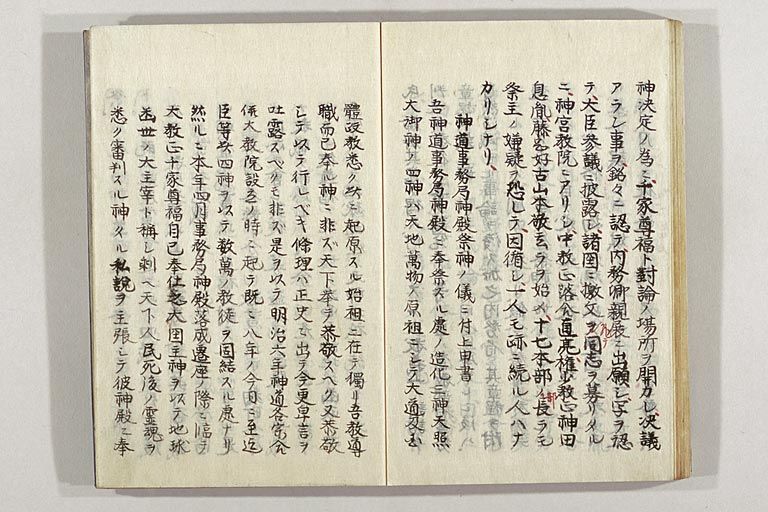 神決定ノ為ニ千家尊福ト對論ノ場所ヲ開カレ決議
アラン事ヲ銘々ニ認テ内務卿親展ニ出願シ写ヲ認
テ大臣参議ニ披露シ諸国ニ檄文ヲ同志ヲ募リタル
ニ神宮教院ニアリシ中教正落合直亮権少教正神田
息胤藤谷好古山本敬玄ラヲ始メ十七本部々長ラモ
祭主ノ嫌疑ヲ恐レテ因循シ一人モ跡ニ続ル人ハナ
カリシナリ
神道事務局神殿祭神ノ儀ニ付上申書
吾神道事務局神殿ニ奉祭スル處ノ造化三神天照
大御神ノ四神ハ天地萬物ノ原祖ニシテ大道及玄
體設教悉ク茲ニ起原スル始祖ニ在テ獨リ吾教導
職而已奉ル神ニ非ズ天下挙テ恭敬スベク又恭敬
シテ以テ行レベキ條理ハ正史ニ出テ今更卑言ヲ
吐露スベクモ非ズ是ヲ以テ明治六年神道各宗合
併大教院設立ノ時ニ起テ既ニ八年ノ今日ニ至迄
臣等茲四神ヲ以テ数萬ノ教徒ヲ固結スル處ナリ
然ルニ本年四月事務局神殿落成遷座ノ際ニ臨テ
大教正千家尊福自己奉仕之大国主神ヲ以テ地球
幽世ノ大主宰ト稱シ剰ヘ天下人民死後ノ霊魂ヲ
悉ク審判スル神タル私説ヲ主張シテ彼神殿ニ奉